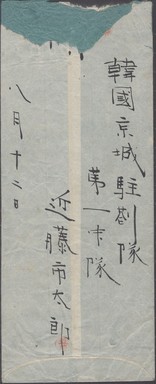 韓國京城駐劄隊
第一中隊
近藤市太郎
八月十二日